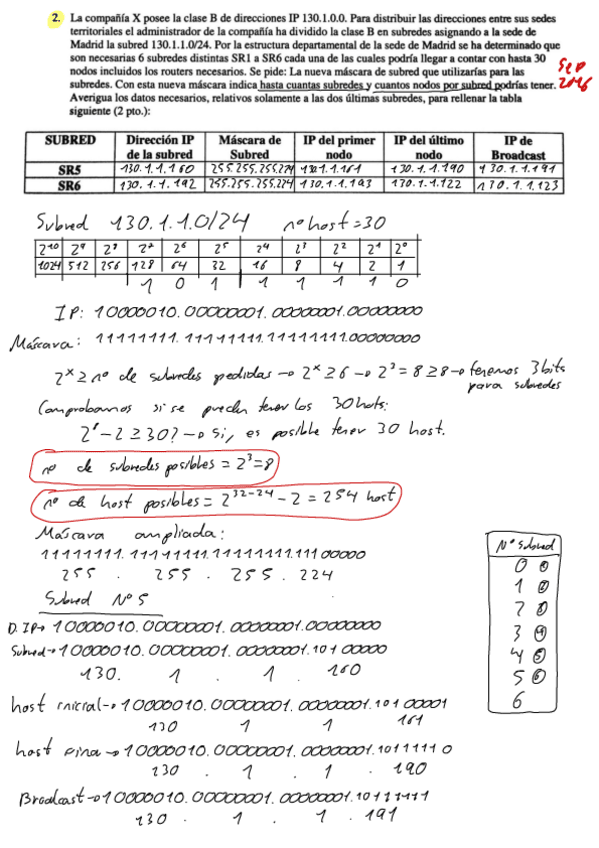 2. La compañía X posee la clase B de direcciones IP 130.1.0.0. Para distribuir las direcciones entre sus sedes
territoriales el administrador de la compañía ha dividido la clase B en subredes asignando a la sede de
Madrid la subred 130.1.1.0/24. Por la estructura departamental de la sede de Madrid se ha determinado que
son necesarias 6 subredes distintas SR1 a SR6 cada una de las cuales podría llegar a contar con hasta 30
nodos incluidos los routers necesarios. Se pide: La nueva máscara de subred que utilizarías para las
subredes. Con esta nueva máscara indica hasta cuantas subredes y cuantos nodos por subred podrías tener.
Averigua los datos necesarios, relativos solamente a las dos últimas subredes, para rellenar la tabla
siguiente (2 pto.):
Sep
2016
SUBRED Dirección IP de la subred Máscara de Subred IP del primer nodo IP del último nodo IP de Broadcast
SR5 130.1.1.160 255.255.255.224 130.1.1.161 130.1.1.190 130.1.1.191
SR6 130.1.1.192 255.255.255.224 130.1.1.193 130.1.1.122 130.1.1.123
Subred 130.1.1.0/24 nº host=30
2¹⁰ 2⁹ 2⁸ 2⁷ 2⁶ 2⁵ 2⁴ 2³ 2² 2¹ 2⁰
1024 512 256 128 64 32 16 8 4 2 1
1 0 1 1 1 1 1 0
IP: 10000010.00000001.00000001.00000000
Máscara: 11111111.11111111.11111111.00000000
2ˣ ≥ nº de subredes pedidas → 2ˣ ≥ 6 → 2³ = 8 ≥ 8 → tenemos 3 bits
para subredes
Comprobamos si se pueden tener los 30 hots:
- 2 ≥ 30? → Si, es posible tener 30 host.
nº de subredes posibles = 2³ = 8
nº de host posibles = 2³²⁻²⁴ - 2 = 254 host
Máscara ampliada:
11111111.11111111.11111111.11100000
255 . 255 . 255 . 224
Nº Subred
0 ①
1 ②
2 ③
3 ④
4 ⑤
5 ⑥
6
Subred Nº 5
D. IP→ 10000010.00000001.00000001.00000000
Subred→ 10000010.00000001.00000001.10100000
130. 1 . 1 . 160
host inicial→ 10000010.00000001.00000001.10100001
130 1 1 161
host fina → 10000010.00000001.00000001.10111110
130 . 1 . 1 . 190
Broadcast→ 10000010.00000001.00000001.10111111
130 . 1 . 1 . 191